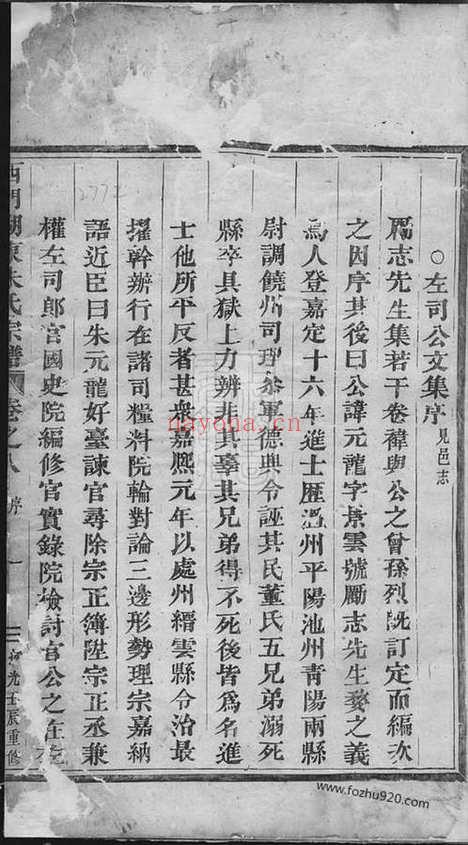 ○左司公文集序見邑志
厲志先生集若干卷褘與公之曾孫烈既訂定而編次
之因序其後曰公諱元龍字景雲號厲志先生婺之義
烏人登嘉定十六年進士歷溫州平陽池州青陽兩縣
尉調饒州司理叅軍德興令誣其民董氏五兄弟溺死
縣卒具獄上力辨非其辜其兄弟得不死後皆爲名進
士他所平反者甚衆嘉熙元年以處州縉雲縣令治最
擢幹辦行在諸司糧料院輪對論三邊形勢理宗嘉納
語近臣曰朱元龍好臺諫官尋除宗正簿陞宗正丞兼
權左司郎官國史院編修官實錄院檢討官公之在左
西門湖東朱氏宗譜 卷之八 序 一 光緒壬辰重修
2772
nayona.cn
www.fozhu920.com